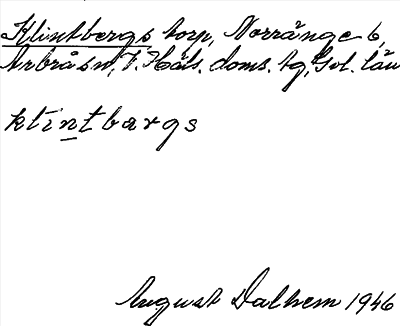 Klintbergs torp, Norränge 6,
Arbrå sn, V. Häls. doms. tg, Gvl. län
klintbargs
August Dalhem 1946